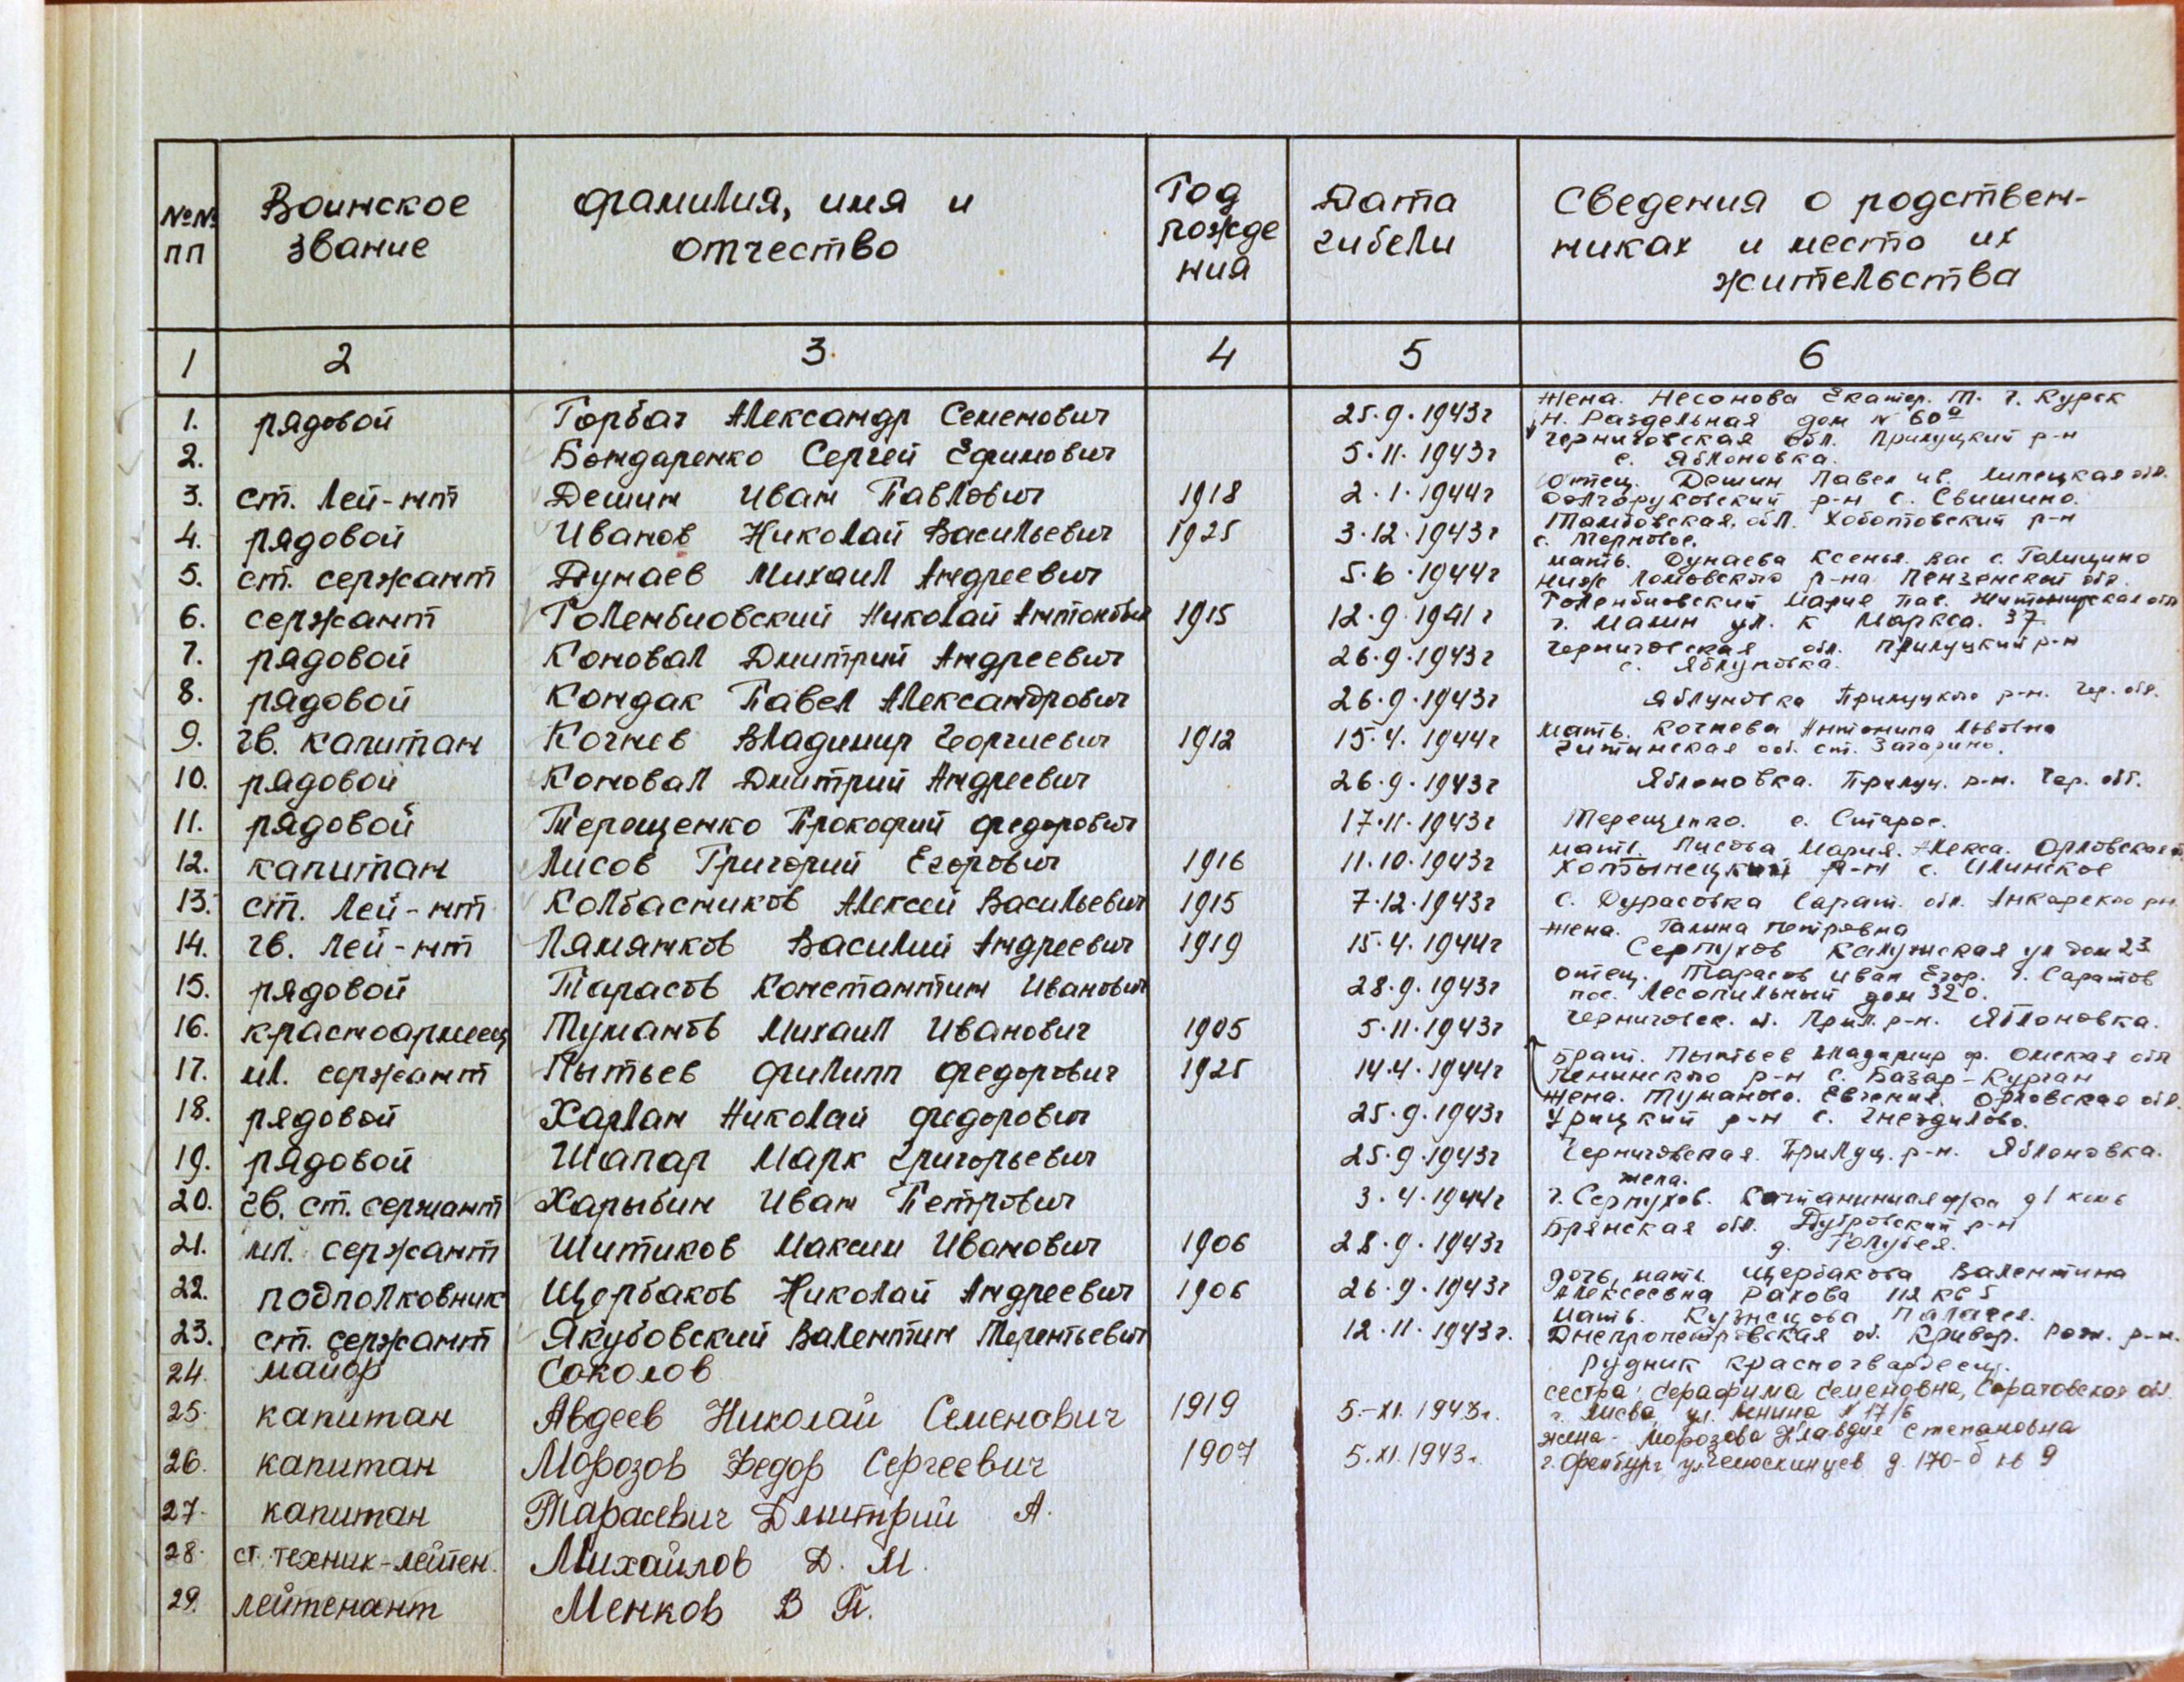 №№ пп Воинское звание фамилия, имя и отчество Год рожде ния Дата гибели Сведения о родствен- никах и место их жительства
1 2 3 4 5 6
1. рядовой Горбач Александр Семенович 25.9.1943г жена. Несонова Екатер. Т. г. Курск
Н. Раздельная дом № 60а
2. Бондаренко Сергей Ефимович 5.11.1943г Черниговская обл. Прилуцкий р-н
с. Яблоновка.
3. ст. лей-нт Дешин Иван Павлович 1918 2.1.1944г Отец. Дешин Павел ив. Липецкая обл.
Долгоруковский р-н с. Свишино.
4. рядовой Иванов Николай Васильевич 1925 3.12.1943г Тамбовская, обл. Хоботовский р-н
с. Терновое.
5. ст. сержант Дунаев Михаил Андреевич 5.6.1944г мать. Дунаева Ксенья. Вас с. Голицино
Ниж Ломовского р-на Пензенской обл.
6. сержант Голембиовский Николай Антонович 1915 12.9.1941г Голембиовский Мария Пав. Житомирская обл
г. Малин ул. К Маркса. 37
7. рядовой Коновал Дмитрий Андреевич 26.9.1943г Черниговская обл. Прилуцкий р-н
с. Яблуновка.
8. рядовой Кондак Павел Александрович 26.9.1943г Яблуновка Прилуцкого р-н. Чер. обл.
9. гв. капитан Кочнев Владимир Георгиевич 1912 15.4.1944г мать. Кочнева Антонина Львовна
Читинская обл. ст.
10. рядовой Коновал Дмитрий Андреевич 26.9.1943г Яблоновка. Прилуц. р-н. Чер. обл.
11. рядовой Терещенко Прокофий федорович 17.11.1943г Терещенко. с. Старое.
12. капитан Лисов Григорий Егорович 1916 11.10.1943г мать. Лисова Мария. Алекса. Орловская
Хотынецкий р-н с. Илинское
13. ст. лей-нт Колбасников Алексей Васильевич 1915 7.12.1943г с. Дурасовка Сарат. обл. Анкарского рн
14. гв. лей-нт Лямянков Василий Андреевич 1919 15.4.1944г жена. Галина Петровна
Серпухов Калужская ул дом 23
15. рядовой Тарасов Константин Иванович 28.9.1943г Отец. Тарасов Иван Егор. г. Саратов
пос. Лесопильный дом 320.
16. красноармеец Туманов Михаил Иванович 1905 5.11.1943г Черниговск. о. Прил. р-н. Яблоновка.
17. мл. сержант Пытьев филипп федорович 1925 14.4.1944г Брат. Пытьев Владимир ф. Омская обл
Ленинского р-н с. Базар-Курган
18. рядовой Харлан Николай федорович 25.9.1943г жена. Туманова. Евгения. Орловская обл.
Урицкий р-н с. Гнездилово.
19. рядовой Шапар Марк Григорьевич 25.9.1943г Черниговская. Прилуц. р-н. Яблоновка.
20. гв. ст. сержант Харыбин Иван Петрович 3.4.1944г жена.
г. Серпухов.
21. мл. сержант Шитиков Максим Иванович 1906 28.9.1943г Брянская обл. Дубровский р-н
д. Голубея.
22. подполковник Щербаков Николай Андреевич 1906 26.9.1943г дочь, мать. Щербакова Валентина
Алексеевна Рахова 112 кв 5
23. ст. сержант Якубовский Валентин Терентьевич 12.11.1943г. мать. Кузнецова Палагея.
Днепропетровская об. Кривор. Рож. р-н.
рудник Красногвардеец.
24. майор Соколов
25. капитан Авдеев Николай Семенович 1919 5.-XI.1943г. сестра: Серафима Семеновна, Саратовская обл.
г. ул. Ленина № 17/6
26. капитан Морозов Федор Сергеевич 1907 5.XI.1943г. жена - Морозова Клавдия Степановна
г. Оренбург ул Челюскинцев д. 170-б кв 9
27. капитан Тарасевич Дмитрий А.
28. ст. техник-лейтен. Михайлов Д. М.
29. лейтенант Менков В П.